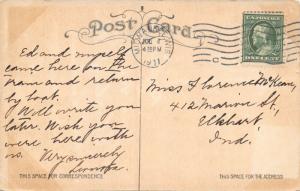 Post Card
JUL
4 30 PM
1911
U.S. POSTAGE
ONE CENT
Ed and myself
came here on the
train and return
by boat.
Will write you
later. Wish you
were here with
us.
Very sincerely
Miss Florence McKean,
412 Marion St,
Elkhart
Ind.
THIS SPACE FOR CORRESPONDENCE
THIS SPACE FOR THE ADDRESS